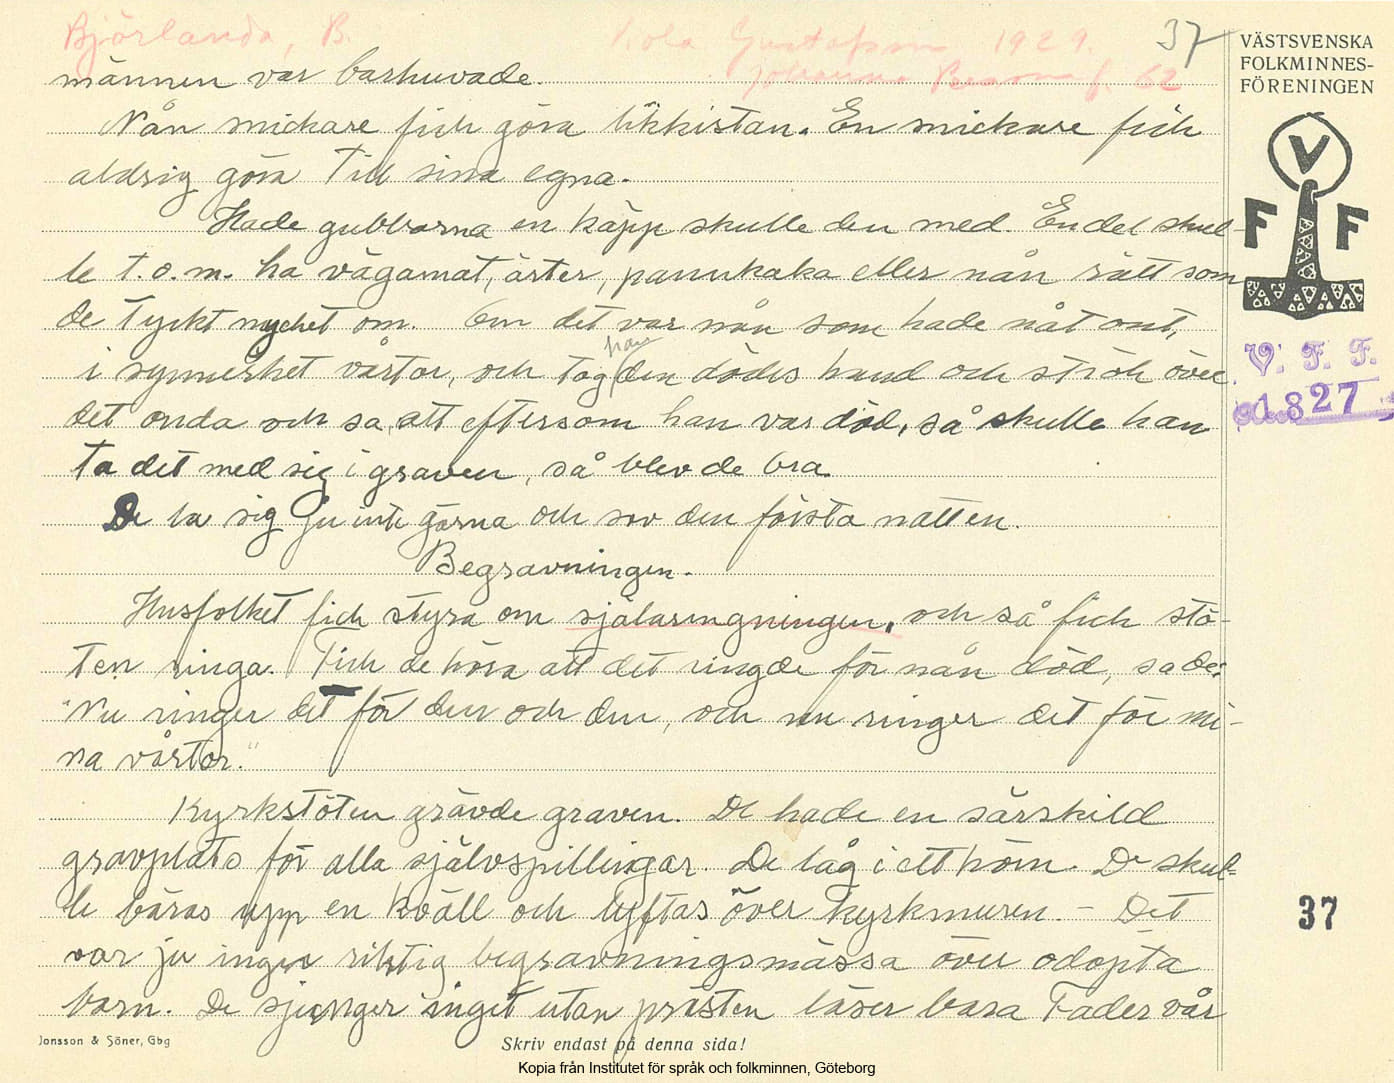 Björlanda, B.
Gustafson 1929.
f. 62
37
VÄSTSVENSKA
FOLKMINNES-
FÖRENINGEN
männen var barhuvade.
Nån snickare fick göra likkistan. En snickare fick
aldrig göra till sina egna.
Hade gubbarna en käpp skulle den med. En del skul-
le t.o.m. ha vägamat, ärter, pannkaka eller nån rätt som
de tyckt mychet om. Om det var nån som hade nåt ont,
i synnerhet vårtor, och tog han den dödes hand och strök över
det onda och sa, att eftersom han var död, så skulle han
ta det med sig i graven, så blev de bra.
De la sig ju inte gärna och sov den första natten.
Begravningen.
Husfolket fick styra om själaringningen, och så fick stö-
ten ringa. Fick de höra att det ringde för nån död, sa de:
"Nu ringer det för den och den, och nu ringer det för mi-
na vårtor."
Kyrkstöten grävde graven. De hade en särskild
gravplats för alla självspillingar. De låg i ett hörn. De skul-
le bäras upp en kväll och lyftas över kyrkmuren. - Det
var ju ingen riktig begravningsmässa över odöpta
barn. De sjunger inget utan prästen läser bara Fader vår
V
F F
V. F. F.
1827
37
Jonsson & Söner, Gbg
Skriv endast på denna sida!
Kopia från Institutet för språk och folkminnen, Göteborg